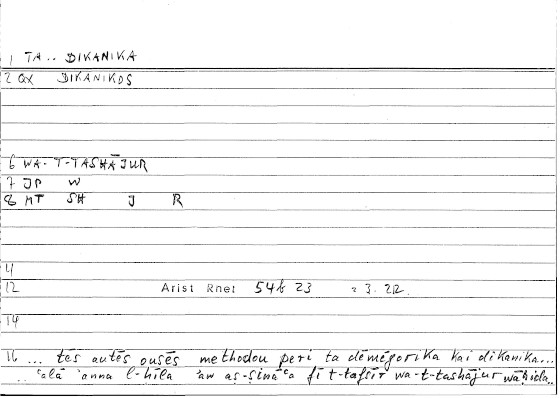 1 TA .. DIKANIKA
2 QX DIKANIKOS
6 WA- T-TASHĀJUR
7 JP W
8 MT SH J R
11
12 Arist Rhet 54b 23 = 3. 22
14
16 ... tēs autēs ousēs methodou peri ta dēmēgorika kai dikanika...
.. ʿalā ʾanna l-ḥīla ʾaw aṣ-ṣināʿa fī t-tafsīr wa-t-tashājur wāḥida..